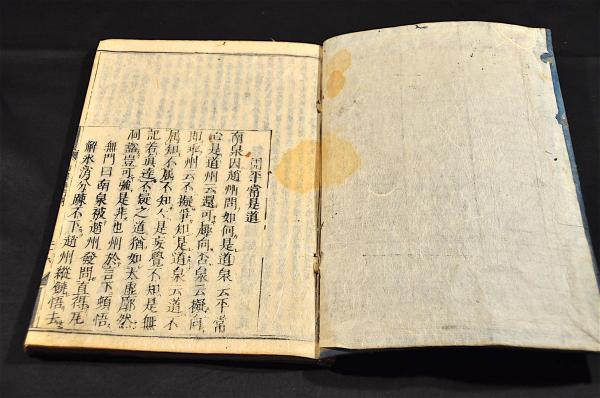 平常是道
南泉因趙州問如何是道泉云平常
心是道州云還可趣向否泉云擬向
即乖州云不擬爭知是道泉云道不
属知不属不知々是妄覺不知是無
記若眞達不疑之道猶如太虛廓然
洞豁豈可強是非也州於言下頓悟
無門曰南泉被趙州發問直得瓦
解氷消分疎不下趙州縱饒悟去